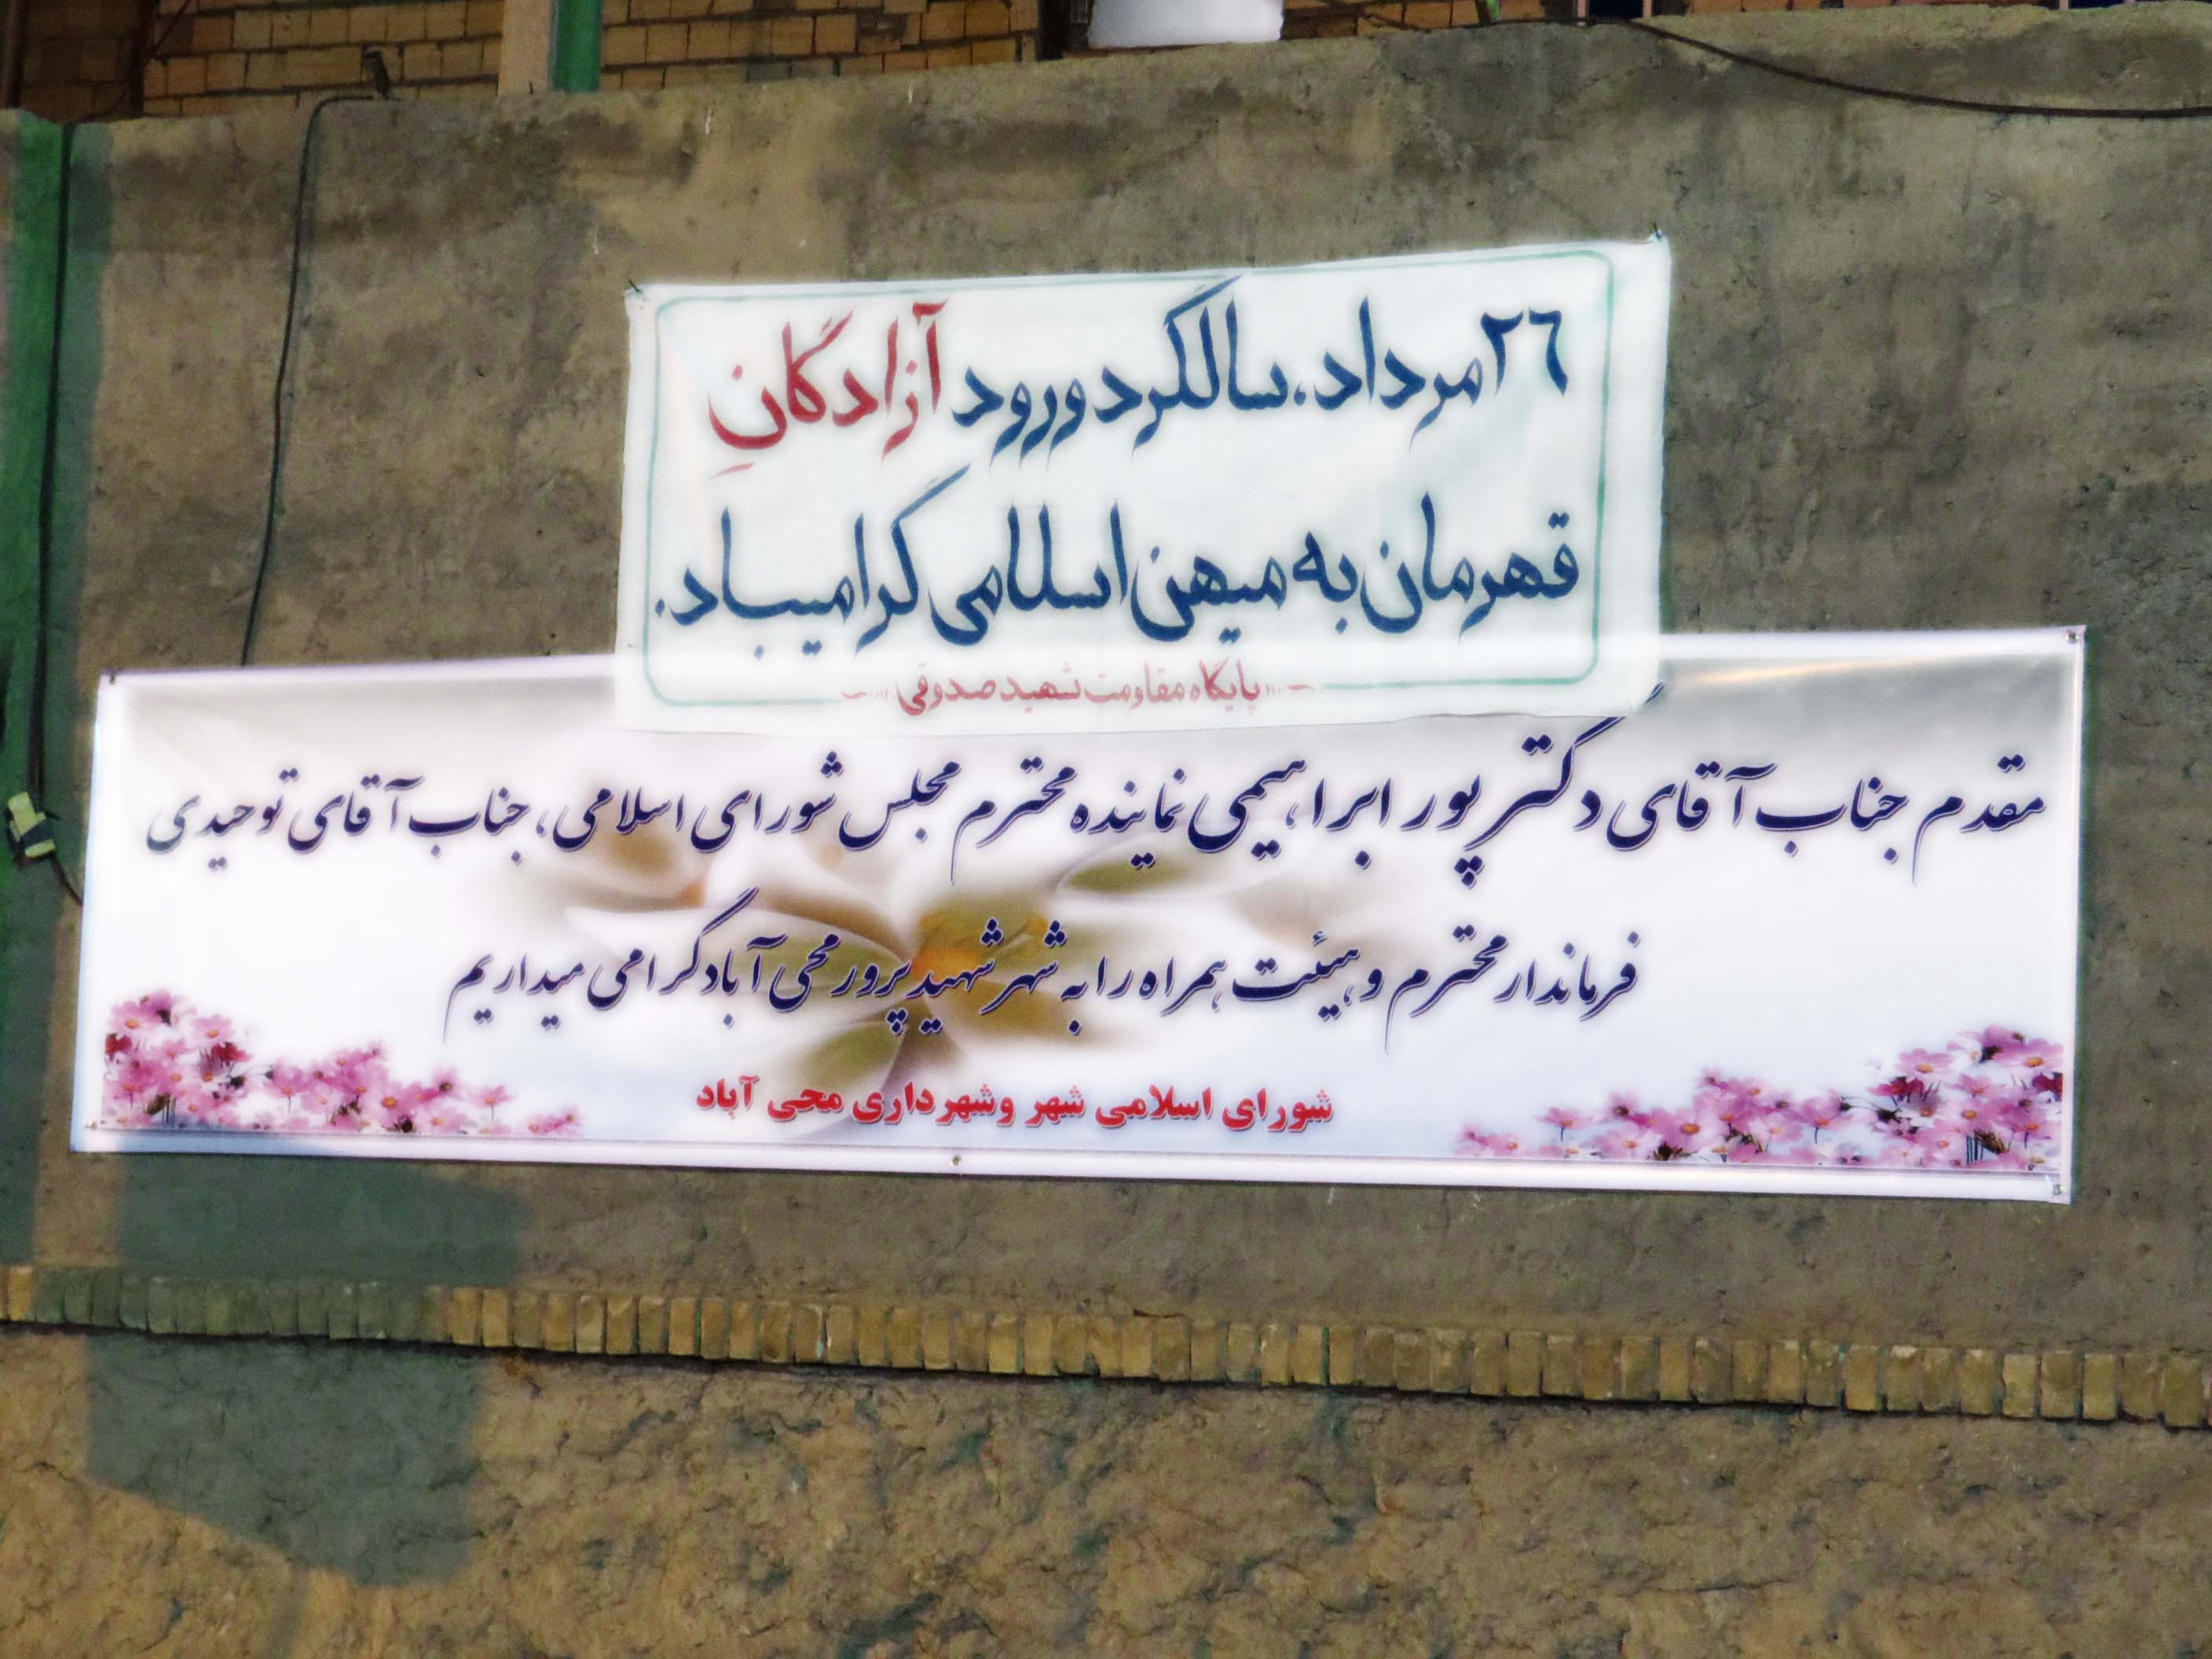 ۲٦ مرداد، سالگرد ورود آزادگانِ
قهرمان به میهن اسلامی گرامیباد.
پایگاه مقاومت شهید صدوقی
مقدم جناب آقای دکتر پور ابراهیمی نماینده محترم مجلس شورای اسلامی، جناب آقای توحیدی
فرماندار محترم و هیئت همراه را به شهر شهید پرور محی آباد گرامی میداریم
شورای اسلامی شهر وشهرداری محی آباد